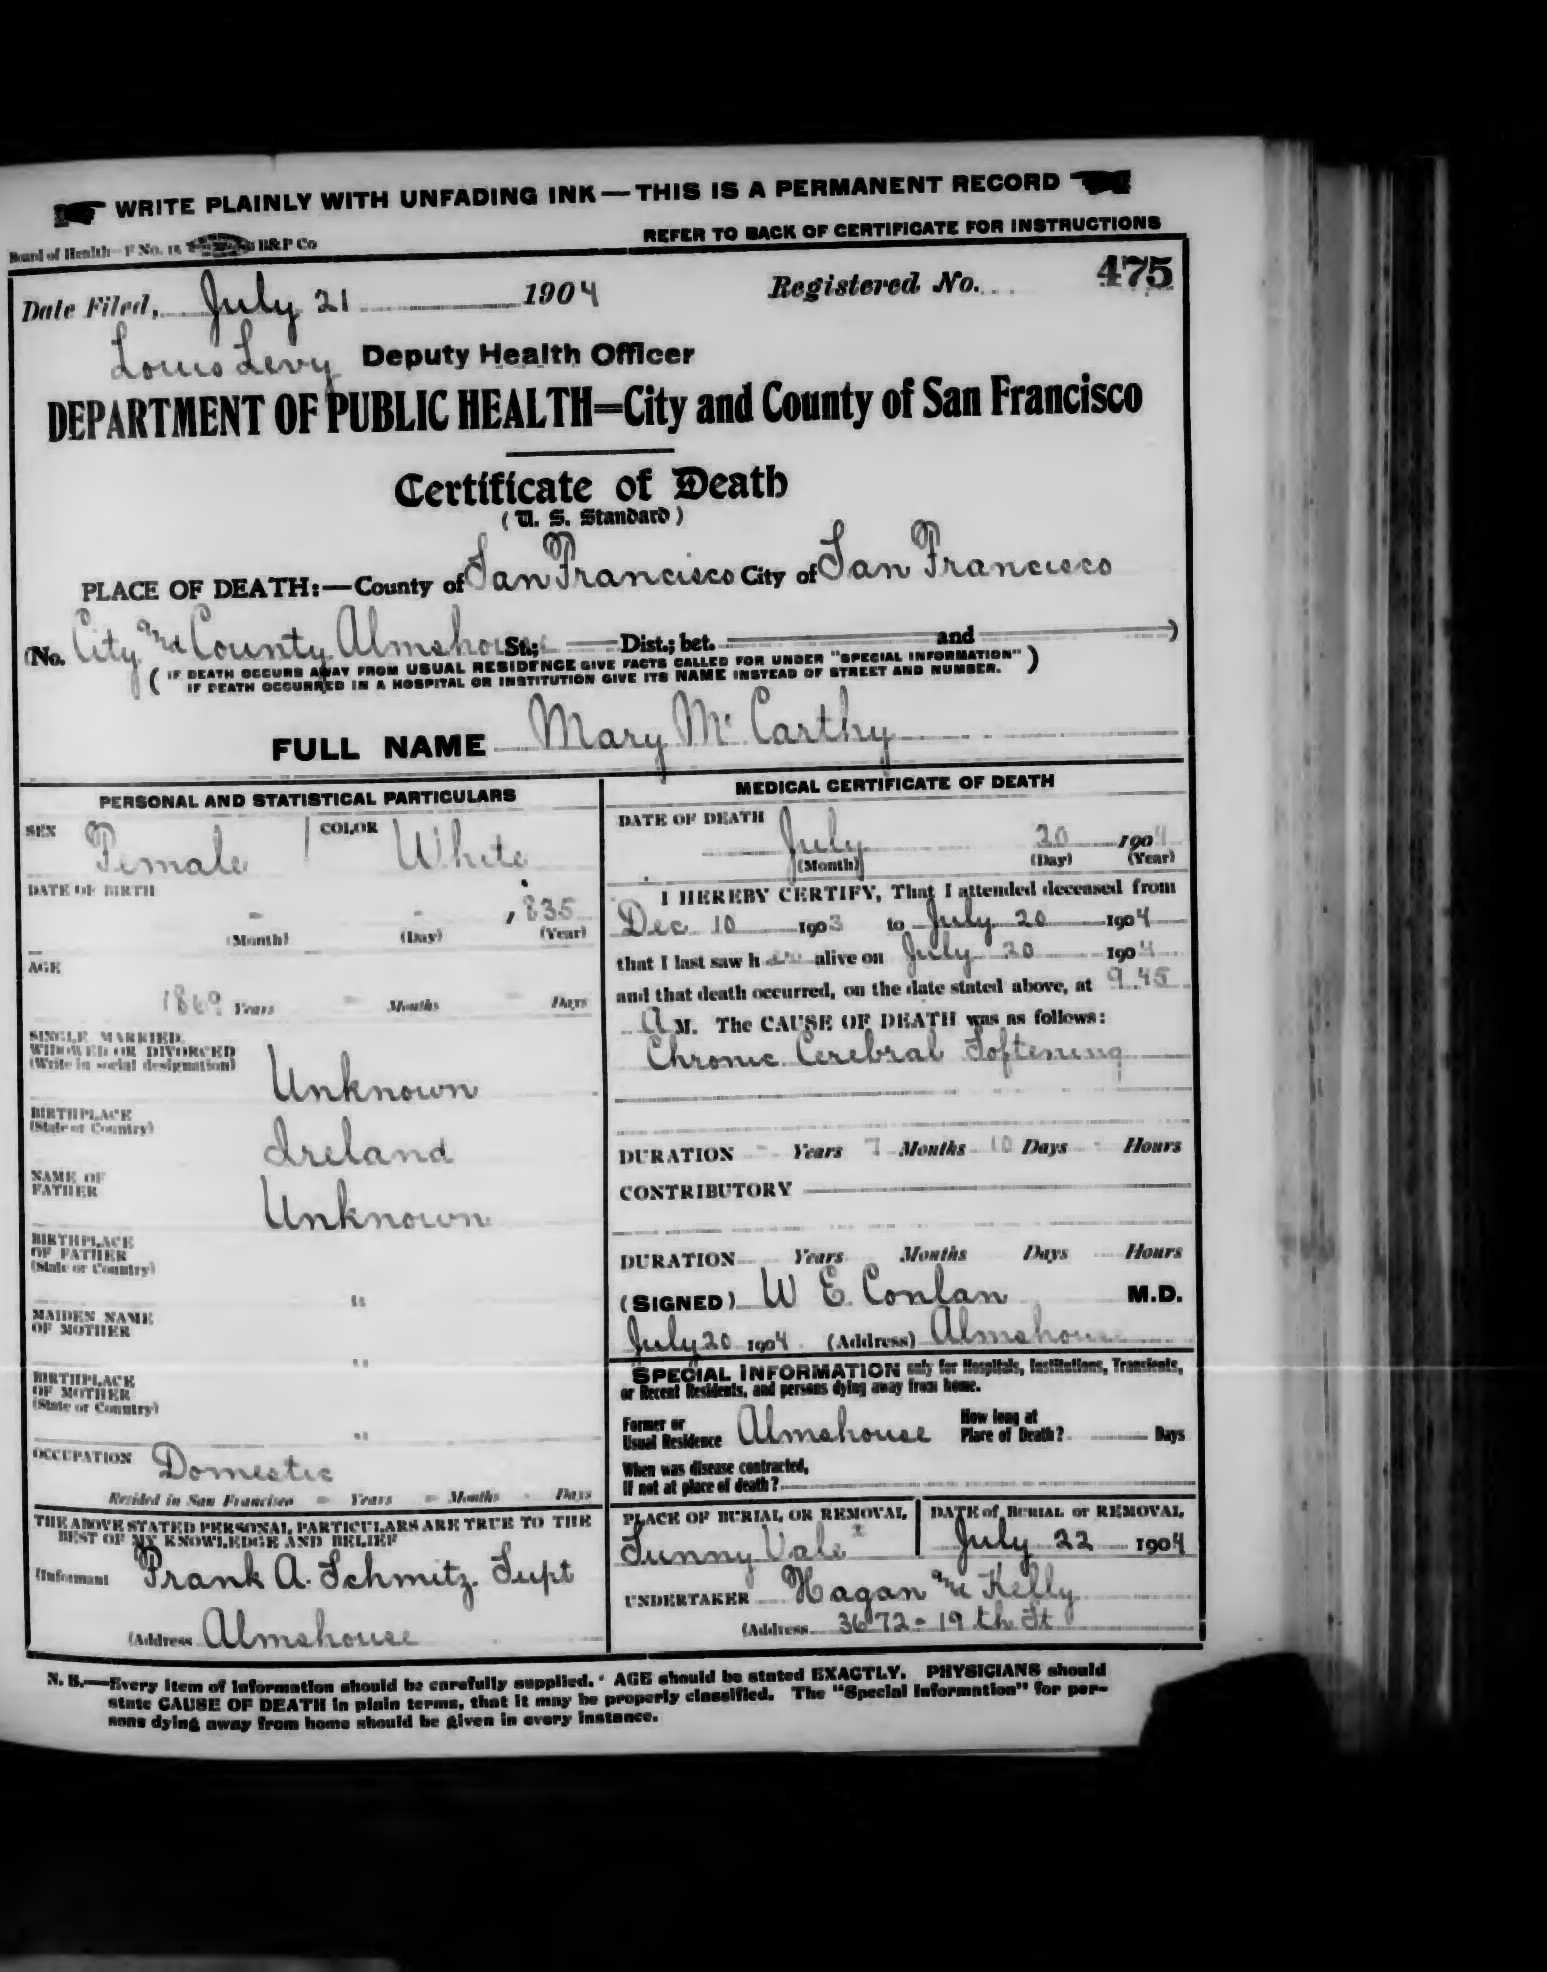 WRITE PLAINLY WITH UNFADING INK — THIS IS A PERMANENT RECORD
Board of Health—F No. 15 B&P Co
REFER TO BACK OF CERTIFICATE FOR INSTRUCTIONS
Date Filed, July 21 1904 Registered No. 475
Louis Levy Deputy Health Officer
DEPARTMENT OF PUBLIC HEALTH=City and County of San Francisco
Certificate of Death
(U. S. Standard)
PLACE OF DEATH:—County of San Francisco City of San Francisco
(No. City and County Almshouse St.; Dist.; bet. and )
( IF DEATH OCCURS AWAY FROM USUAL RESIDENCE GIVE FACTS CALLED FOR UNDER "SPECIAL INFORMATION" )
IF DEATH OCCURRED IN A HOSPITAL OR INSTITUTION GIVE ITS NAME INSTEAD OF STREET AND NUMBER.
FULL NAME Mary McCarthy
PERSONAL AND STATISTICAL PARTICULARS
SEX Female COLOR White
DATE OF BIRTH
- - 1835
(Month) (Day) (Year)
AGE
Years - Months - Days
SINGLE, MARRIED,
WIDOWED OR DIVORCED
(Write in social designation)
Unknown
BIRTHPLACE
(State or Country)
Ireland
NAME OF
FATHER
Unknown
BIRTHPLACE
OF FATHER
(State or Country)
"
MAIDEN NAME
OF MOTHER
"
BIRTHPLACE
OF MOTHER
(State or Country)
"
OCCUPATION Domestic
Resided in San Francisco - Years - Months - Days
THE ABOVE STATED PERSONAL PARTICULARS ARE TRUE TO THE
BEST OF MY KNOWLEDGE AND BELIEF
(Informant Frank A. Schmitz. Supt
(Address Almshouse
MEDICAL CERTIFICATE OF DEATH
DATE OF DEATH
July 20 1904
(Month) (Day) (Year)
I HEREBY CERTIFY, That I attended deceased from
Dec 10 1903 to July 20 1904
that I last saw her alive on July 20 1904
and that death occurred, on the date stated above, at 9.45
A M. The CAUSE OF DEATH was as follows:
Chronic Cerebral Softening
DURATION - Years 7 Months 10 Days - Hours
CONTRIBUTORY
DURATION Years Months Days Hours
(SIGNED) W E. Conlan M.D.
July 20 1904 (Address) Almshouse
SPECIAL INFORMATION only for Hospitals, Institutions, Transients,
or Recent Residents, and persons dying away from home.
Former or
Usual Residence Almshouse
How long at
Place of Death? Days
When was disease contracted,
If not at place of death?
PLACE OF BURIAL OR REMOVAL
Sunny Vale
DATE of BURIAL or REMOVAL
July 22 1904
UNDERTAKER Hagan and Kelly
(Address 3672 - 19th St
N. B.—Every item of information should be carefully supplied. AGE should be stated EXACTLY. PHYSICIANS should
state CAUSE OF DEATH in plain terms, that it may be properly classified. The "Special Information" for per-
sons dying away from home should be given in every instance.